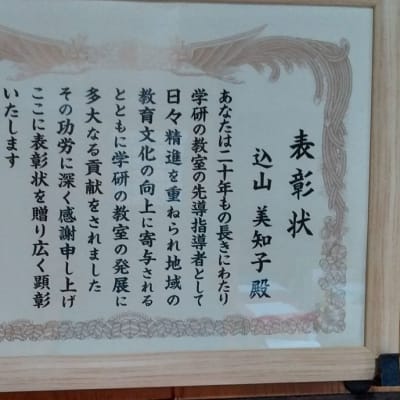 表彰状
込山 美知子 殿
あなたは二十年もの長きにわたり
学研の教室の先導指導者として
日々精進を重ねられ地域の
教育文化の向上に寄与される
とともに学研の教室の発展に
多大なる貢献をされました
その功労に深く感謝申し上げ
ここに表彰状を贈り広く顕彰
いたします